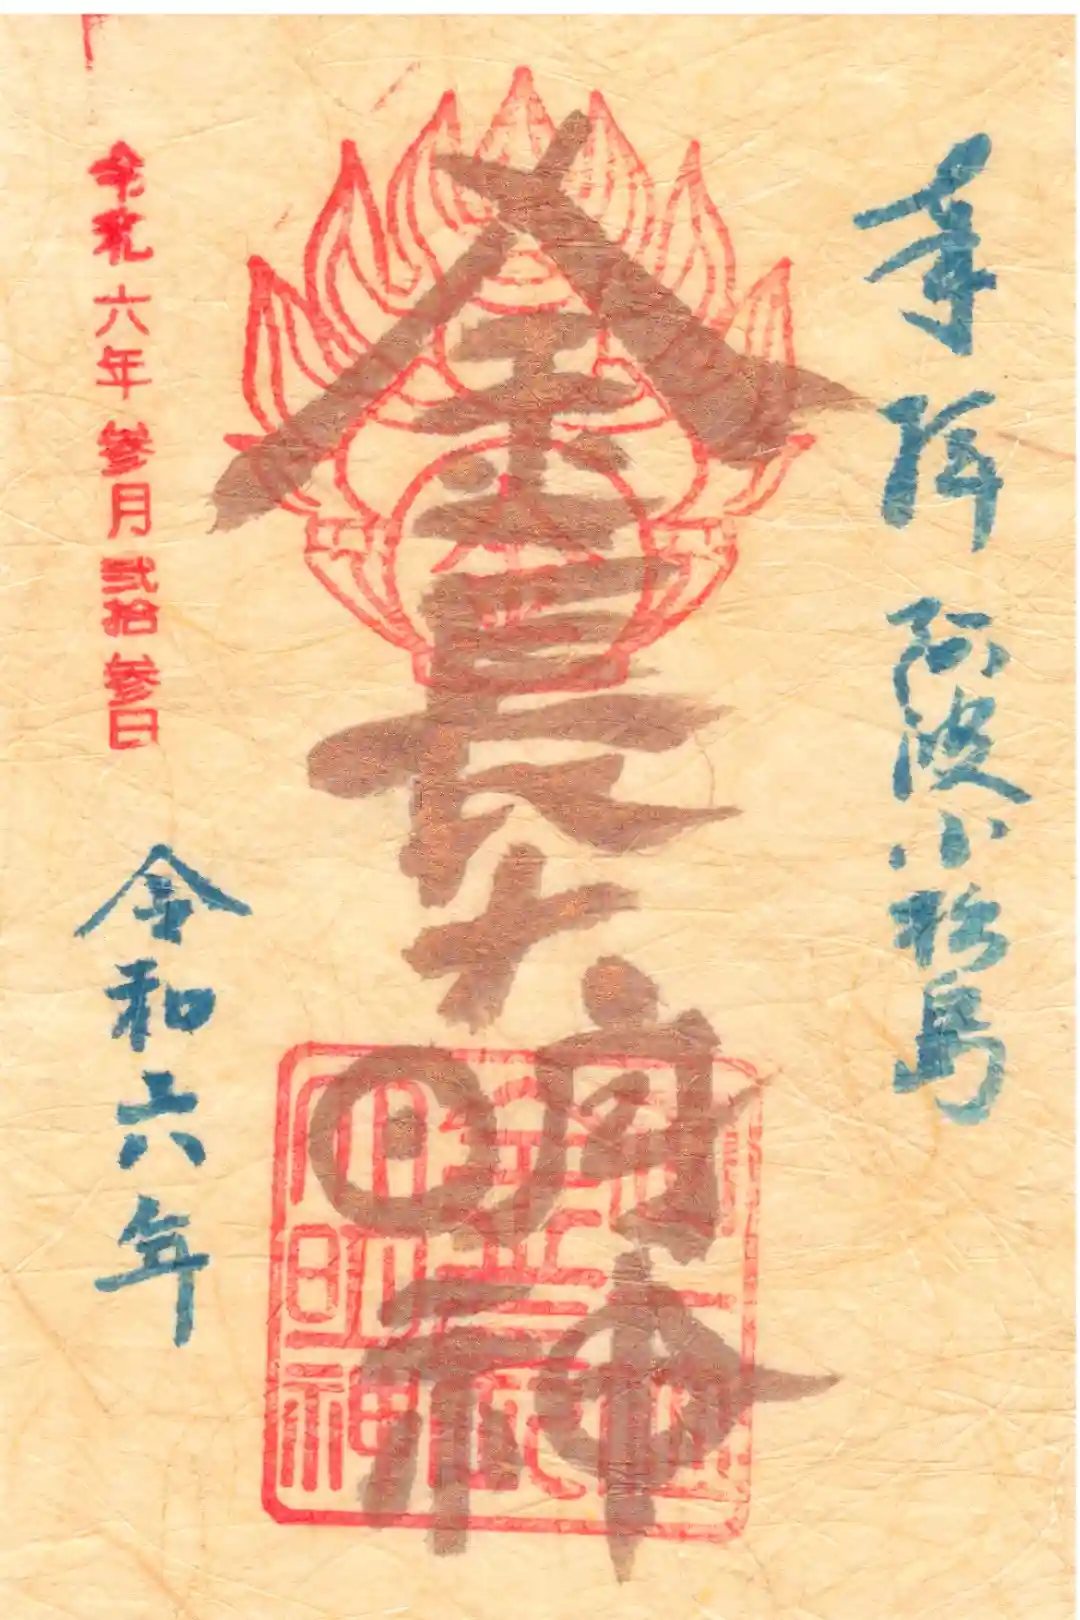 奉拝 阿波小松島
金長大明神
大明神
令和六年参月弐拾参日
令和六年